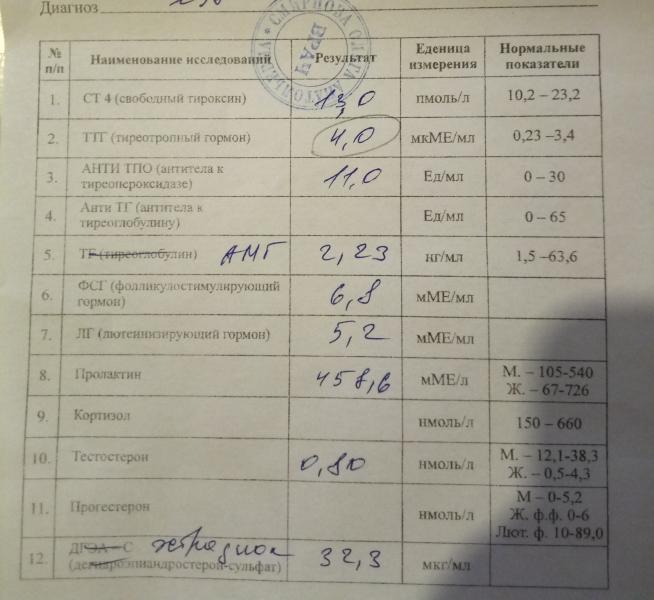 Диагноз
СМИРНОВА ОЛЬГА АНАТОЛЬЕВНА
ВРАЧ
№ п/п Наименование исследований Результат Еденица измерения Нормальные показатели
1. СТ 4 (свободный тироксин) 13,0 пмоль/л 10,2 – 23,2
2. ТТГ (тиреотропный гормон) 4,0 мкМЕ/мл 0,23 –3,4
3. АНТИ ТПО (антитела к тиреопероксидазе) 11,0 Ед/мл 0 – 30
4. Анти ТГ (антитела к тиреоглобулину) Ед/мл 0 – 65
5. ТГ (тиреоглобулин) АМГ 2,23 нг/мл 1,5 –63,6
6. ФСГ (фолликулостимулирующий гормон) 6,8 мМЕ/мл
7. ЛГ (лютеинизирующий гормон) 5,2 мМЕ/мл
8. Пролактин 458,6 мМЕ/л М. – 105-540
Ж. – 67-726
9. Кортизол нмоль/л 150 – 660
10. Тестостерон 0,80 нмоль/л М. – 12,1-38,3
Ж. – 0,5-4,3
11. Прогестерон нмоль/л М – 0-5,2
Ж. ф.ф. 0-6
Лют. ф. 10-89,0
12. ДГЭА – С эстрадиол
(дегидроэпиандростерон-сульфат) 32,3 мкг/мл